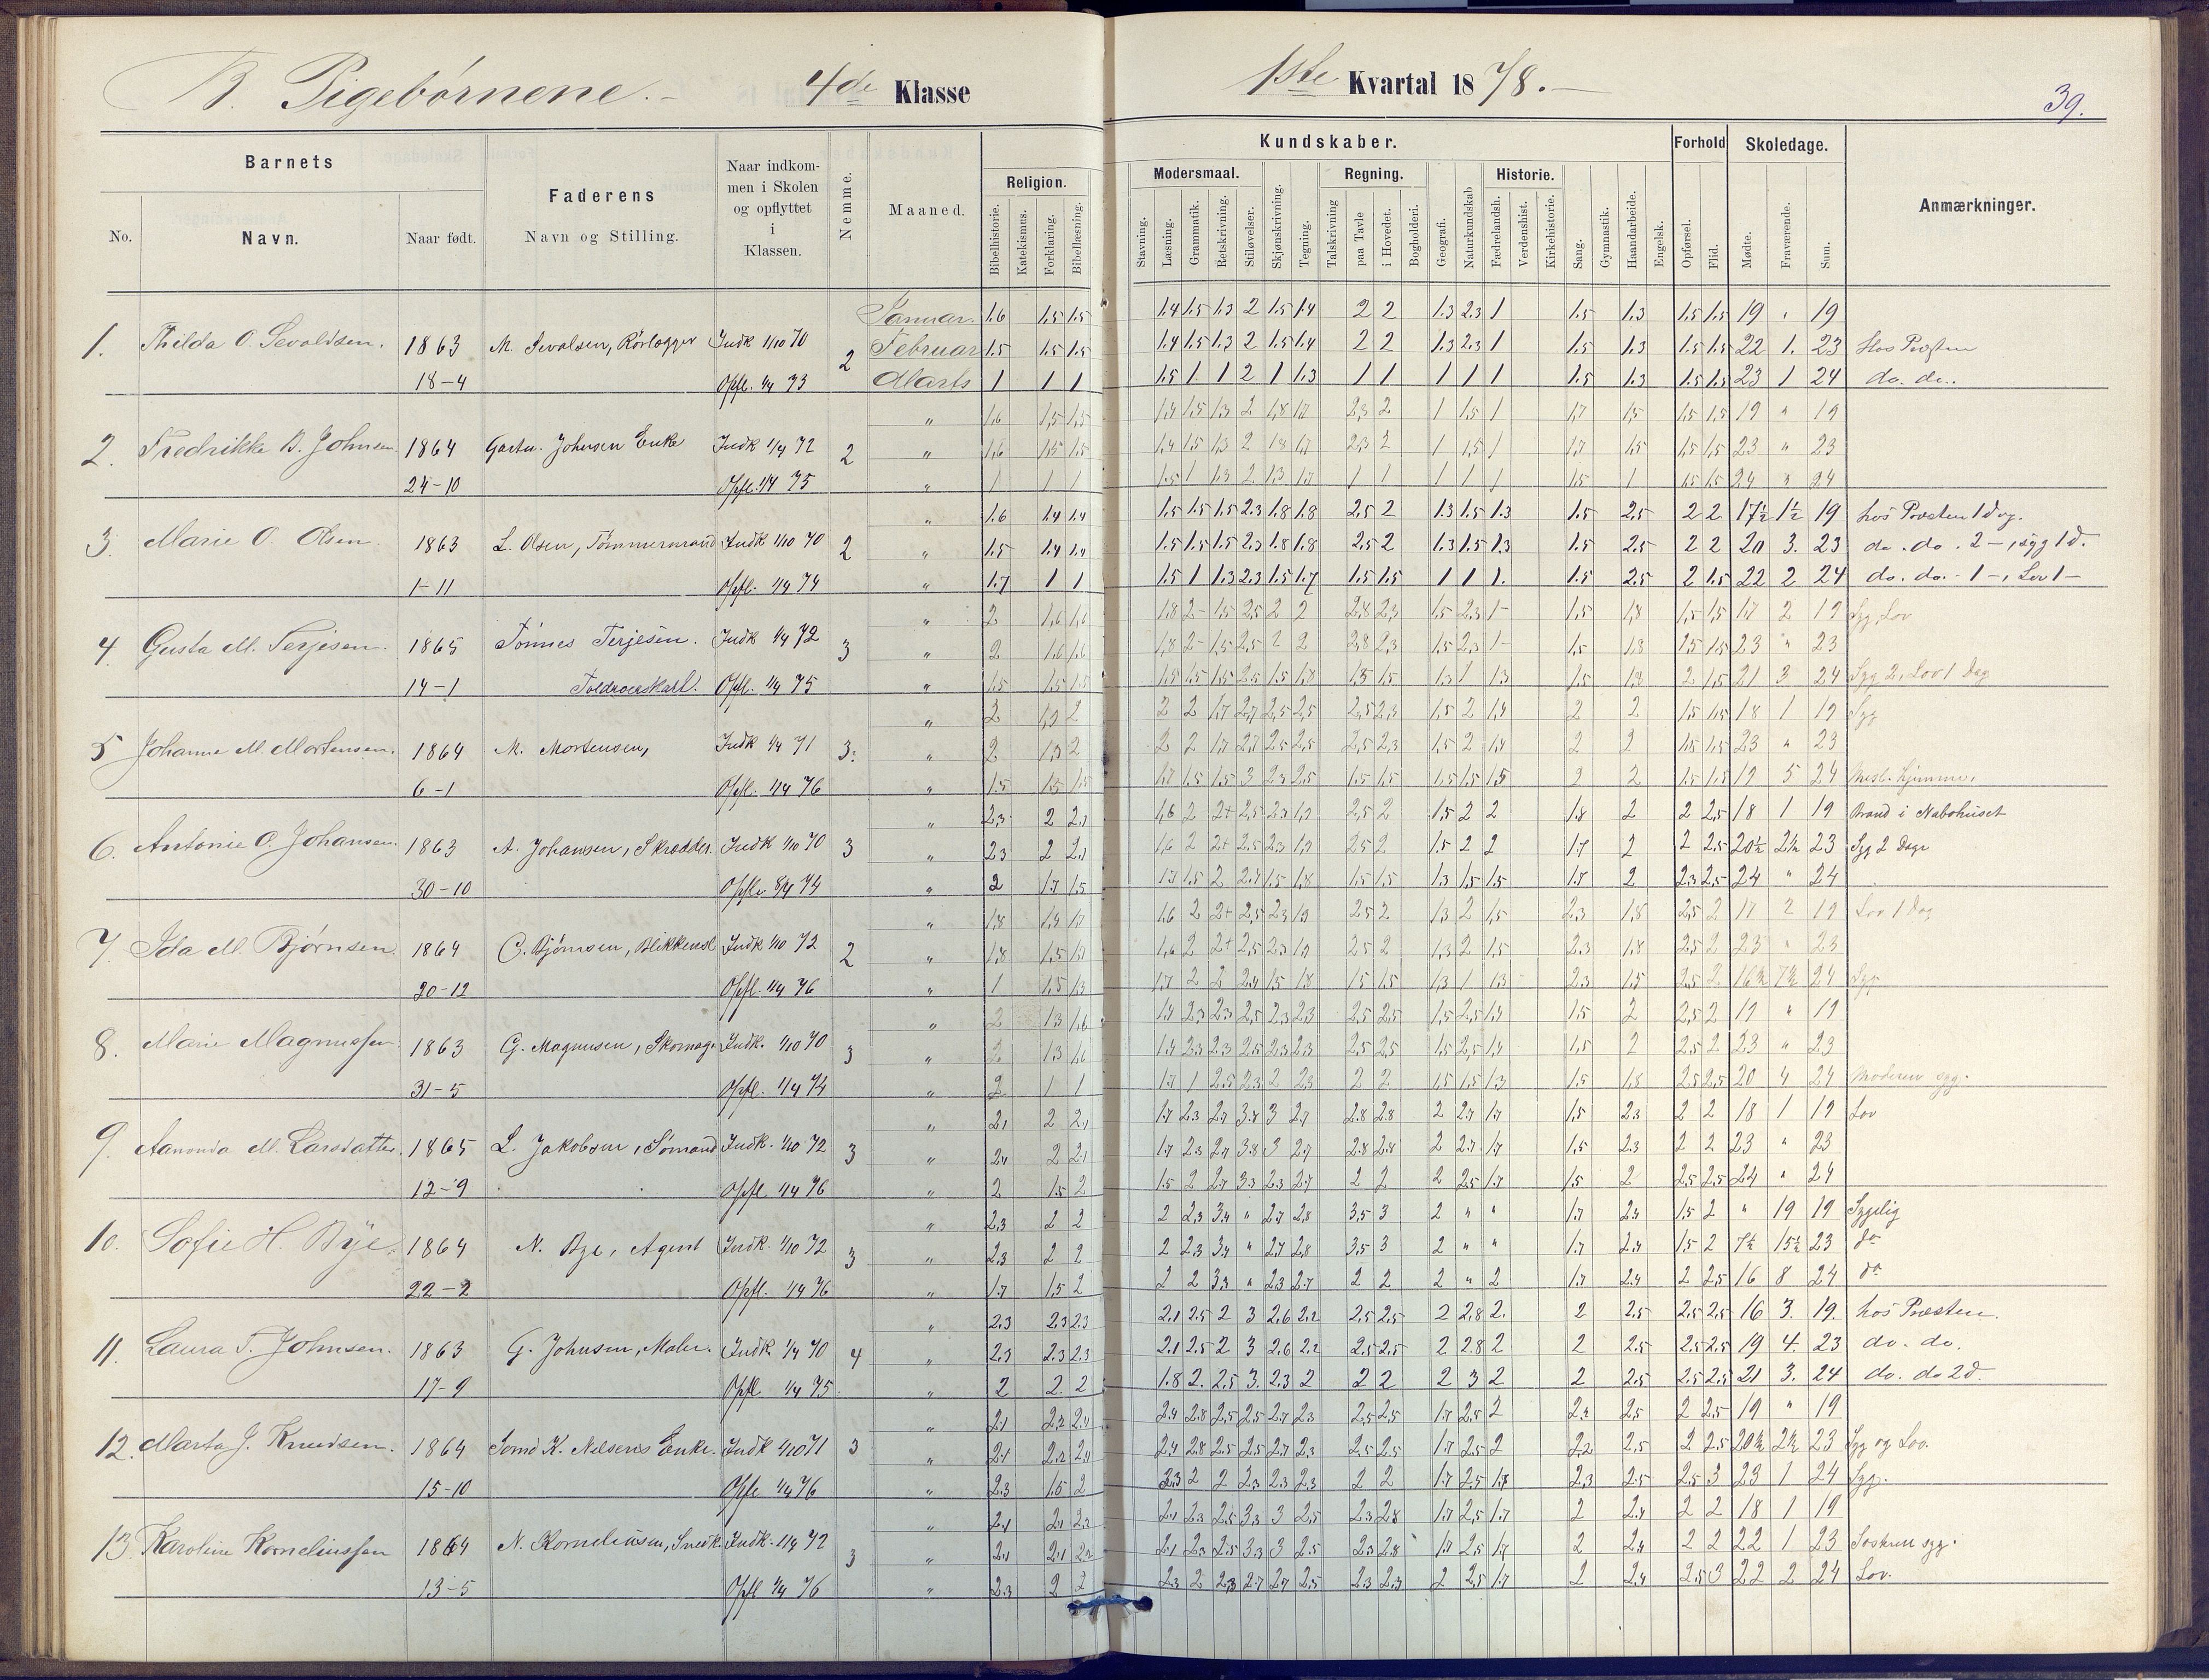 B. Pigebørnene.- 4de Klasse
1ste Kvartal 1878.-
39.
Barnets
Faderens
Naar indkommen i Skolen og opflyttet i Klassen.
Nemme.
Maaned.
Religion.
Kundskaber.
Forhold
Skoledage.
Anmærkninger.
Modersmaal.
Regning.
Historie.
No.
Navn.
Naar født.
Navn og Stilling.
Bibelhistorie.
Katekismus.
Forklaring.
Bibellæsning.
Stavning.
Læsning.
Grammatik.
Retskrivning.
Stiløvelser.
Skjønskrivning.
Tegning.
Talskrivning
paa Tavle
i Hovedet.
Bogholderi.
Geografi.
Naturkundskab
Fædrelandsh.
Verdenshist.
Kirkehistorie.
Sang.
Gymnastik.
Haandarbeide.
Engelsk.
Opførsel.
Flid.
Mødte.
Fraværende.
Sum.
Januar. 1.6 1.5 1.5 1.4 1.5 1.3 2 1.5 1.4 2 2 1.3 2.3 1 1.5 1.3 1.5 1.5 19 " 19
1. Thilda O. Sevaldsen. 1863 M. Sevalsen, Rørlægger Indk 1/10 70 2 Februar 1.5 1.5 1.5 1.4 1.5 1.3 2 1.5 1.4 2 2 1.3 2.3 1 1.5 1.3 1.5 1.5 22 1. 23 Hos Præsten
18-4 Opfl. 1/4 73 Marts 1 1 1 1.5 1 1 2 1 1.3 1 1 1 1 1 1.5 1.3 1.5 1.5 23 1 24 do. do.
" 1.6 1,5 1,5 1,4 1,5 1,3 2 1,8 1,7 2,3 2 1 1,5 1 1,7 1,5 1,5 1,5 19 " 19
2. Fredrikke B. Johnsen 1864 Johnsen Enke Indk 1/4 72 2 " 1,6 1,5 1,5 1,4 1,5 1,3 2 1,8 1,7 2,3 2 1 1,5 1 1,7 1,5 1,5 1,5 23 " 23
24-10 Opfl. 1/4 75 " 1 1 1 1.5 1 1.3 2 1.3 1.7 1 1 1 1 1 1.5 1 1.5 1.5 24 " 24
" 1.6 1.4 1.4 1.5 1.5 1.5 2.3 1.8 1.8 2.5 2 1.3 1.5 1.3 1.5 2.5 2 2 17½ 1½ 19 hos Præsten 1 dag.
3. Marie O. Olsen 1863 L. Olsen, Tømmermand Indk 1/10 70 2 " 1.5 1.4 1.4 1.5 1.5 1.5 2.3 1.8 1.8 2.5 2 1.3 1.5 1.3 1.5 2.5 2 2 20 3. 23 do. do. 2 -, syg 1 d.
1-11 Opfl. 1/4 74 " 1.7 1 1 1.5 1 1.3 2.3 1.5 1.7 1.5 1.5 1 1 1. 1.5 2.5 2 1.5 22 2 24 do. do. - 1 -, Lov 1 -
" 2 1,6 1,6 1,8 2- 1,5 2,5 2 2 2,8 2,3 1,5 2,3 1- 1,5 1,8 1,5 1,5 17 2 19 Syg, Lov
4. Gusta M. Terjesen. 1865 Tønnes Terjesen. Indk 1/4 72 3 " 2 1,6 1,6 1,8 2- 1,5 2,5 2 2 2,8 2,3 1,5 2,3 1- 1,5 1,8 1,5 1,5 23 " 23
14-1 Opfl. 1/4 75 " 1.5 1.5 1.5 21 3 24 Syg 2, Lov 1 Dag
" 2 1,9 2 2 2 1,7 2,7 2,5 2,5 2,5 2,3 1,5 2 1,4 2 2 1,5 1,5 18 1 19 Syg
5 Johanne M. Mortensen. 1864 M. Mortensen, Indk 1/4 71 3. " 2 1,9 2 2 2 1,7 2,7 2,5 2,5 2,5 2,3 1,5 2 1,4 2 2 1,5 1,5 23 " 23
6-1 Opfl. 1/4 76 " 1.5 1.5 1.5 1.7 1.5 1.5 3 2.3 2.5 1.5 1.5 1.5 1.5 1.5 2 2 1.5 1.5 19 5 24 hjemme.
" 2,3 2 2,1 1,6 2 2+ 2,5 2,3 1,9 2,5 2 1,5 2 2 1,8 2 2 2,5 18 1 19 Brand i Nabohuset
6. Antonie O. Johansen. 1863 A. Johansen, Skrædder. Indk 1/10 70 3 " 2,3 2 2,1 1,6 2 2+ 2,5 2,3 1,9 2,5 2 1,5 2 2 1,7 2 2 2,5 20½ 2½ 23 Syg 2 Dage
30-10 Opfl. 8/4 74 " 2 1.7 1.5 1.7 1.5 2 2.7 1.5 1.8 1.5 1.5 1.3 1.5 1.5 1.7 2 2.3 2.5 24 " 24
" 1,8 1,4 1,7 1,6 2 2+ 2,5 2,3 1,9 2,5 2 1,3 2 1,5 2,3 1,8 2,5 2 17 2 19 Lov 1 Dag
7. Ida M. Bjørnsen 1864 C. Bjørnsen, Blikkensl Indk 1/10 72 2 " 1,8 1,5 1,7 1,6 2 2+ 2,5 2,3 1,9 2,5 2 1,3 2 1,5 2,3 1,8 2,5 2 23 " 23
20-12 Opfl. 1/4 76 " 1 1.5 1.3 1.7 2 2 2.4 1.5 1.8 1.5 1.5 1.3 1 1.3 2.3 1.5 2.5 2 16½ 7½ 24 Syg
" 2 1,3 1,6 1,4 2,3 2,3 2,5 2,3 2,3 2,5 2,5 1,5 2,5 1,4 1,5 2 2,5 2 19 " 19
8. Marie Magnussen. 1863 G. Magnusen, Skomag. Indk. 1/10 70 3 " 2 1,3 1,6 1,4 2,3 2,3 2,5 2,3 2,3 2,5 2,5 1,5 2,5 1,4 1,5 2 2,5 2 23 " 23
31-5 Opfl. 1/4 74 " 2 1 1 1.7 1 2.5 2.3 2 2.3 2 2 1.5 1.5 1.3 1.5 1.8 2.5 2.5 20 4 24 Moderen syg.
" 2,1 2 2,1 1.7 2.3 2.7 3.7 3 2.7 2.8 2.8 2 2.7 1.7 1.5 2.3 2 2 18 1 19 Lov
9. Aanonda M. Larsdatter. 1865 L. Jakobsen, Sømand Indk. 1/10 72 3 " 2,1 2 2,1 1.7 2.3 2.7 3.8 3 2.7 2.8 2.8 2 2.7 1.7 1.5 2.3 2 2 23 " 23
12-9 Opfl. 1/4 76 " 2 1.5 2 1.5 2 2.7 3.3 2.3 2.7 2 2 2 2.5 1.7 1.5 2 2.5 2.5 24 " 24
" 2,3 2 2 2 2,3 3,4 " 2,7 2,8 3,5 3 2 " " 1.7 2.4 1.5 2 " 19 19 Sygelig
10. Sofie H. Bye. 1864 N. Bye, Agent Indk. 1/10 72 3 " 2,3 2 2 2 2,3 3,4 " 2,7 2,8 3,5 3 2 " " 1.7 2.4 1.5 2 7½ 15½ 23 do
22-2 Opfl. 1/4 76 " 1.7 1.5 2 2 2 3.3 " 2.3 2.7 2 2 2 " 2 1.7 2.4 2 2.5 16 8 24 do
" 2.3 2.3 2.3 2.1 2.5 2 3 2.6 2.2 2.5 2.5 2 2.8 2. 2 2.5 2.5 2.5 16 3. 19. hos Præsten.
11. Laura T. Johnsen. 1863 G. Johnsen, Maler. Indk. 1/4 70 4 " 2.3 2.3 2.3 2.1 2.5 2 3 2.6 2.2 2.5 2.5 2 2.8 2 2 2.5 2.5 2.5 19 4. 23 do. do.
17-9 Opfl. 1/4 75. " 2 2. 2 1.8 2. 2.5 3. 2.3 2 2 2 2 3 2 2 2.5 2.5 2.5 21 3. 24 do. do 2 d.
" 2,1 2,2 2,1 2,4 2,8 2,5 2,5 2,7 2,3 2,5 2,5 1.7 2,5 2 2,2 2,5 2 2,5 19 " 19
12. Marta J. Knudsen. 1864 Sømd K. Nilsens Enke. Indk 1/10 71 3 " 2,1 2,2 2,1 2,4 2,8 2,5 2,5 2,7 2,3 2,5 2,5 1.7 2,5 2 2,2 2,5 2 2,5 20½ 2½ 23 Syg og Lov.
15-10 Opfl. 1/4 76 " 2.3 1.5 2 2.3 2 2 2.3 2.3 2.3 2 2 1.7 2.5 1.7 2.3 2.5 2.5 3 23 1 24 Syg.
" 2,1 2,1 2,2 2,1 2,3 2,5 3,3 3 2,5 2,3 2,8 1.7 2,5 1.7 2 2.4 2 2 18 1 19
13. Karoline Korneliussen 1864 N. Korneliusen, Snedk. Indk. 1/4 72 3 " 2,1 2,1 2,2 2,1 2,3 2,5 3,3 3 2,5 2,3 2,8 1.7 2,5 1.7 2 2.4 2 2 22 1 23 Søskene syg.
13-5 Opfl 1/4 76 " 2.3 2 2 2.3 2 2.3 2.7 2.7 2.5 2.3 2.3 2 2.5 1.7 2 2.4 2.5 3 22 2 24 Lov.